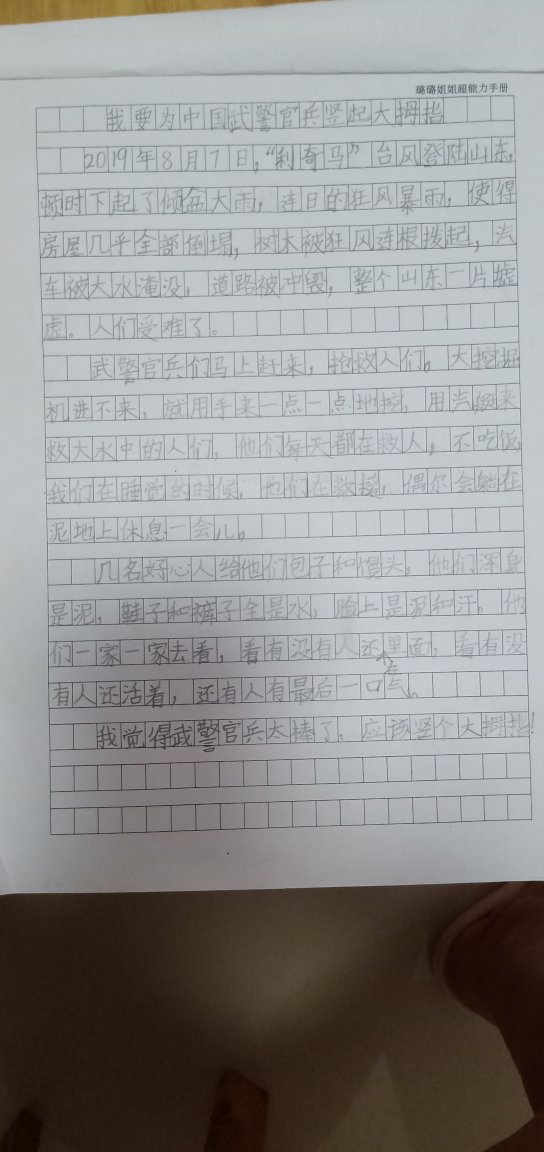 璐璐姐姐超能力手册
我要为中国武警官兵竖起大拇指
2019年8月7日，“利奇马”台风登陆山东，
顿时下起了倾盆大雨，连日的狂风暴雨，使得
房屋几乎全部倒塌，树木被狂风连根拨起，汽
车被大水淹没，道路被冲毁，整个山东一片墟
虚。人们受难了。
武警官兵们马上赶来，抢救人们。大挖掘
机进不来，就用手来一点一点地挖，用汽艇来
救大水中的人们，他们每天都在救人，不吃饭，
我们在睡觉的时候，他们在救援，偶尔会躺在
泥地上休息一会儿。
几名好心人给他们包子和馒头，他们浑身
是泥，鞋子和裤子全是水，脸上是泥和汗。他
们一家一家去看，看有没有人还在里面，看有没
有人还活着，还有人有最后一口气。
我觉得武警官兵太棒了，应该竖个大拇指！